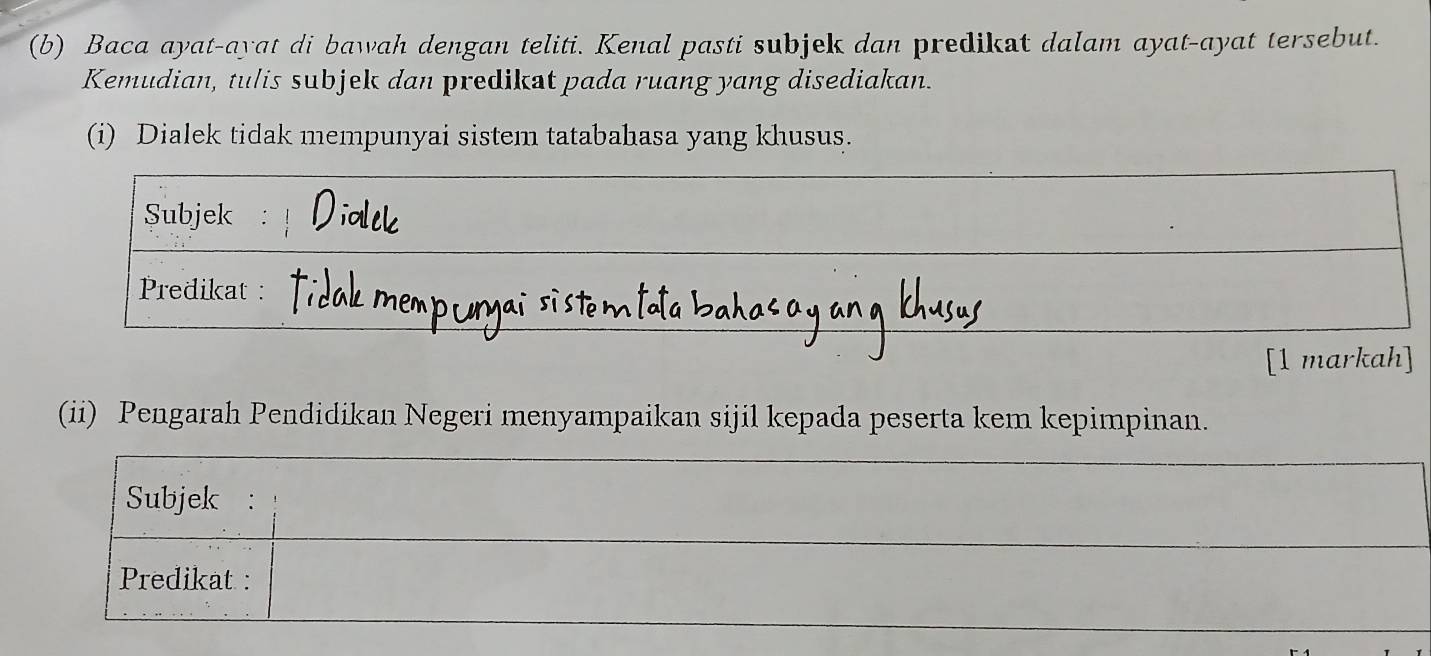 (b) Baca ayat-ayat di bawah dengan teliti. Kenal pasti subjek dan predikat dalam ayat-ayat tersebut.
Kemudian, tulis subjek dan predikat pada ruang yang disediakan.
(i) Dialek tidak mempunyai sistem tatabahasa yang khusus.
Subjek : Dialek
Predikat : Tidak mempunyai sistem tatabahasa yang khusus
[1 markah]
(ii) Pengarah Pendidikan Negeri menyampaikan sijil kepada peserta kem kepimpinan.
Subjek :
Predikat :